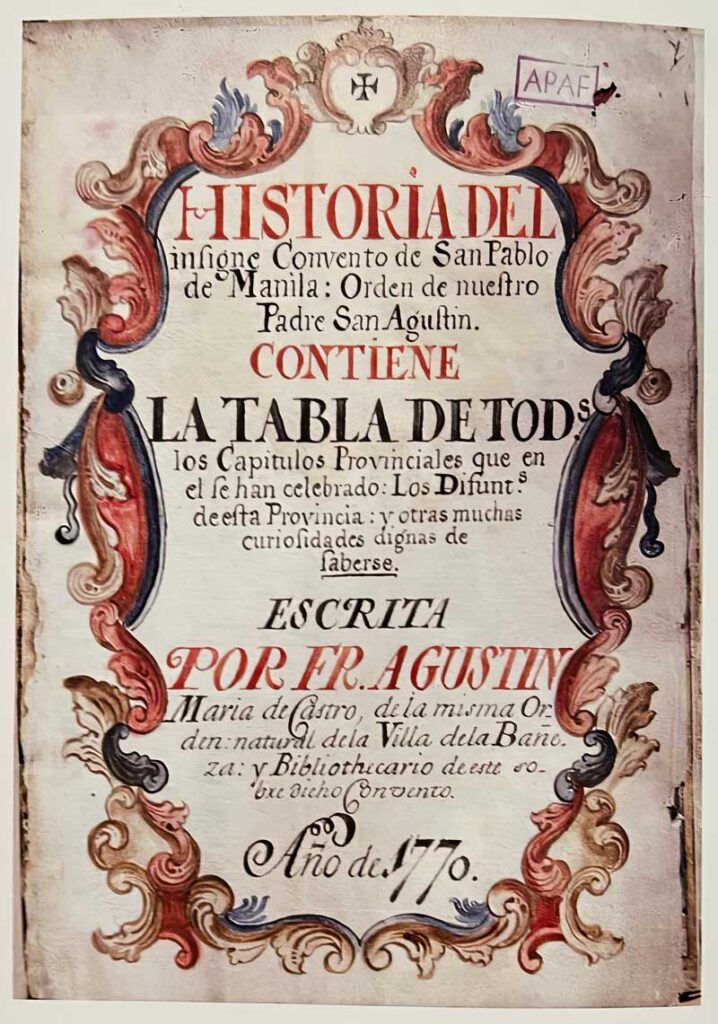 APAF
HISTORIA DEL
insigne Convento de San Pablo
de Manila: Orden de nuestro
Padre San Agustin.
CONTIENE
LA TABLA DE TOD.s
los Capitulos Provinciales que en
el se han celebrado: Los Difunt.s
de esta Provincia: y otras muchas
curiosidades dignas de
saberse.
ESCRITA
POR FR. AGUSTIN
Maria de Castro, de la misma Or-
den: natural de la Villa de la Bañe-
za: y Bibliothecario de este so-
bre dicho Convento.
Año de 1770.